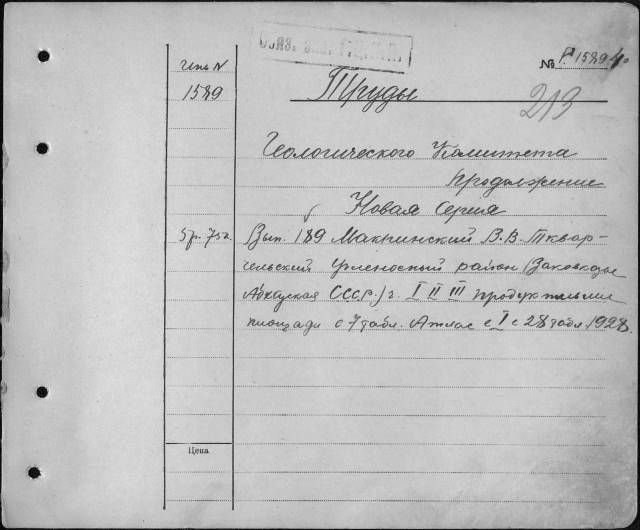 инв N
1589
№ P 1589
Труды
213
Геологического Комитета
продолжение
Новая Серия
5р. 75к. Вып. 189 Мокринский В.В. Тквар-
чельский угленосный район (Закавказье
Абхазская СССР) ч. I II III продуктивные
площади с 7 табл. Атлас с I с 28 табл. 1928.
Цена